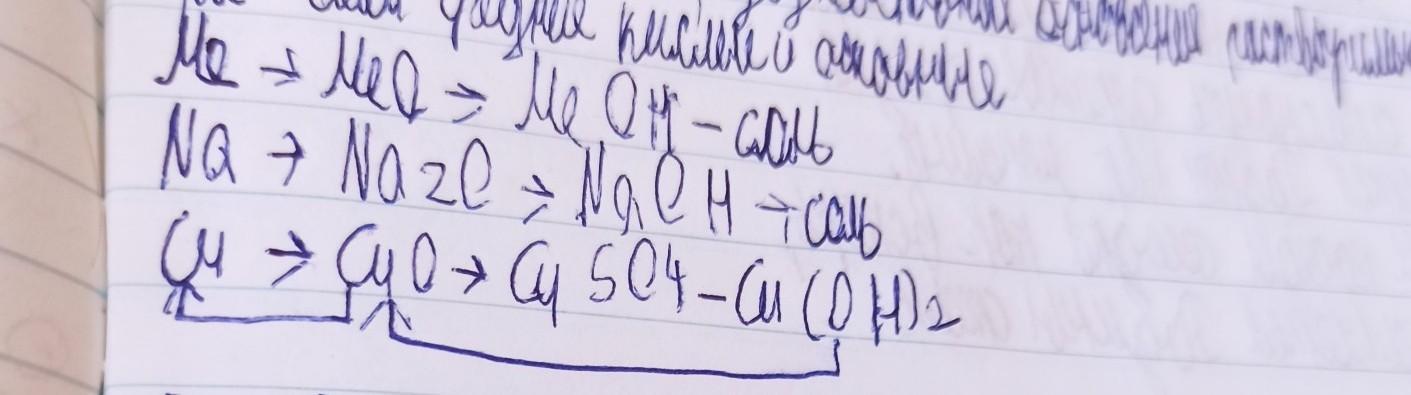 кислые и основные
Me → MeO → MeOH - соль
Na → Na2O → NaOH → соль
Cu → CuO → CuSO4 - Cu(OH)2